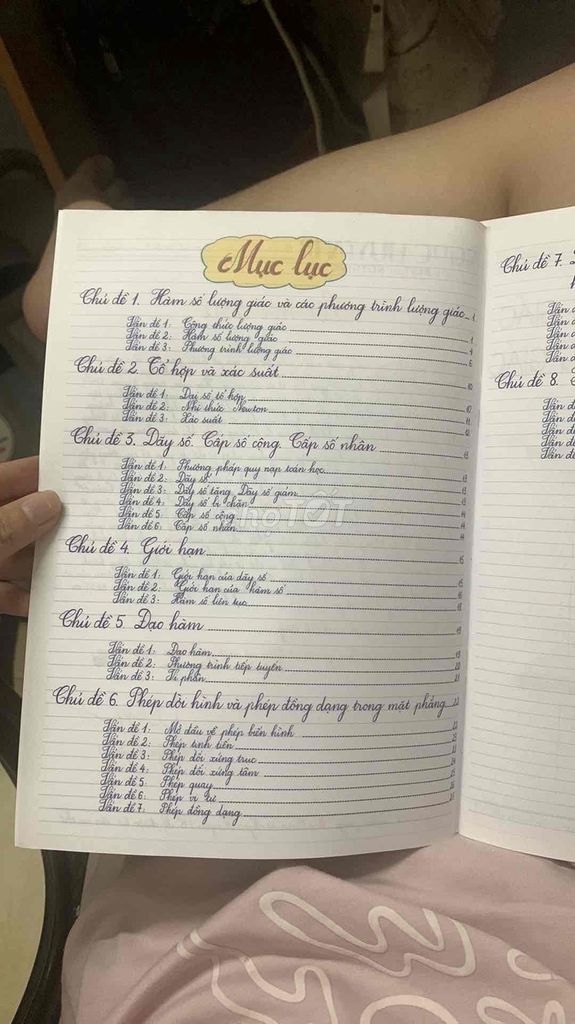 Mục lục
Chủ đề 1. Hàm số lượng giác và các phương trình lượng giác 1
Vấn đề 1: Công thức lượng giác 1
Vấn đề 2: Hàm số lượng giác 4
Vấn đề 3: Phương trình lượng giác 6
Chủ đề 2. Tổ hợp và xác suất 10
Vấn đề 1: Đại số tổ hợp 10
Vấn đề 2: Nhị thức Newton 11
Vấn đề 3: Xác suất 12
Chủ đề 3. Dãy số. Cấp số cộng. Cấp số nhân 13
Vấn đề 1: Phương pháp quy nạp toán học 13
Vấn đề 2: Dãy số 13
Vấn đề 3: Dãy số tăng, Dãy số giảm 13
Vấn đề 4: Dãy số bị chặn 13
Vấn đề 5: Cấp số cộng 14
Vấn đề 6: Cấp số nhân 14
Chủ đề 4. Giới hạn 15
Vấn đề 1: Giới hạn của dãy số 15
Vấn đề 2: Giới hạn của hàm số 16
Vấn đề 3: Hàm số liên tục 18
Chủ đề 5. Đạo hàm 19
Vấn đề 1: Đạo hàm 19
Vấn đề 2: Phương trình tiếp tuyến 20
Vấn đề 3: Vi phân 21
Chủ đề 6. Phép dời hình và phép đồng dạng trong mặt phẳng 22
Vấn đề 1: Mở đầu về phép biến hình
Vấn đề 2: Phép tịnh tiến
Vấn đề 3: Phép đối xứng trục
Vấn đề 4: Phép đối xứng tâm
Vấn đề 5: Phép quay
Vấn đề 6: Phép vị tự
Vấn đề 7: Phép đồng dạng
Chủ đề 7.
Vấn đ
Vấn đ
Vấn đ
Chủ đề 8.
Vấn đ
Vấn đ
Vấn đ
Vấn đ
Vấn đ